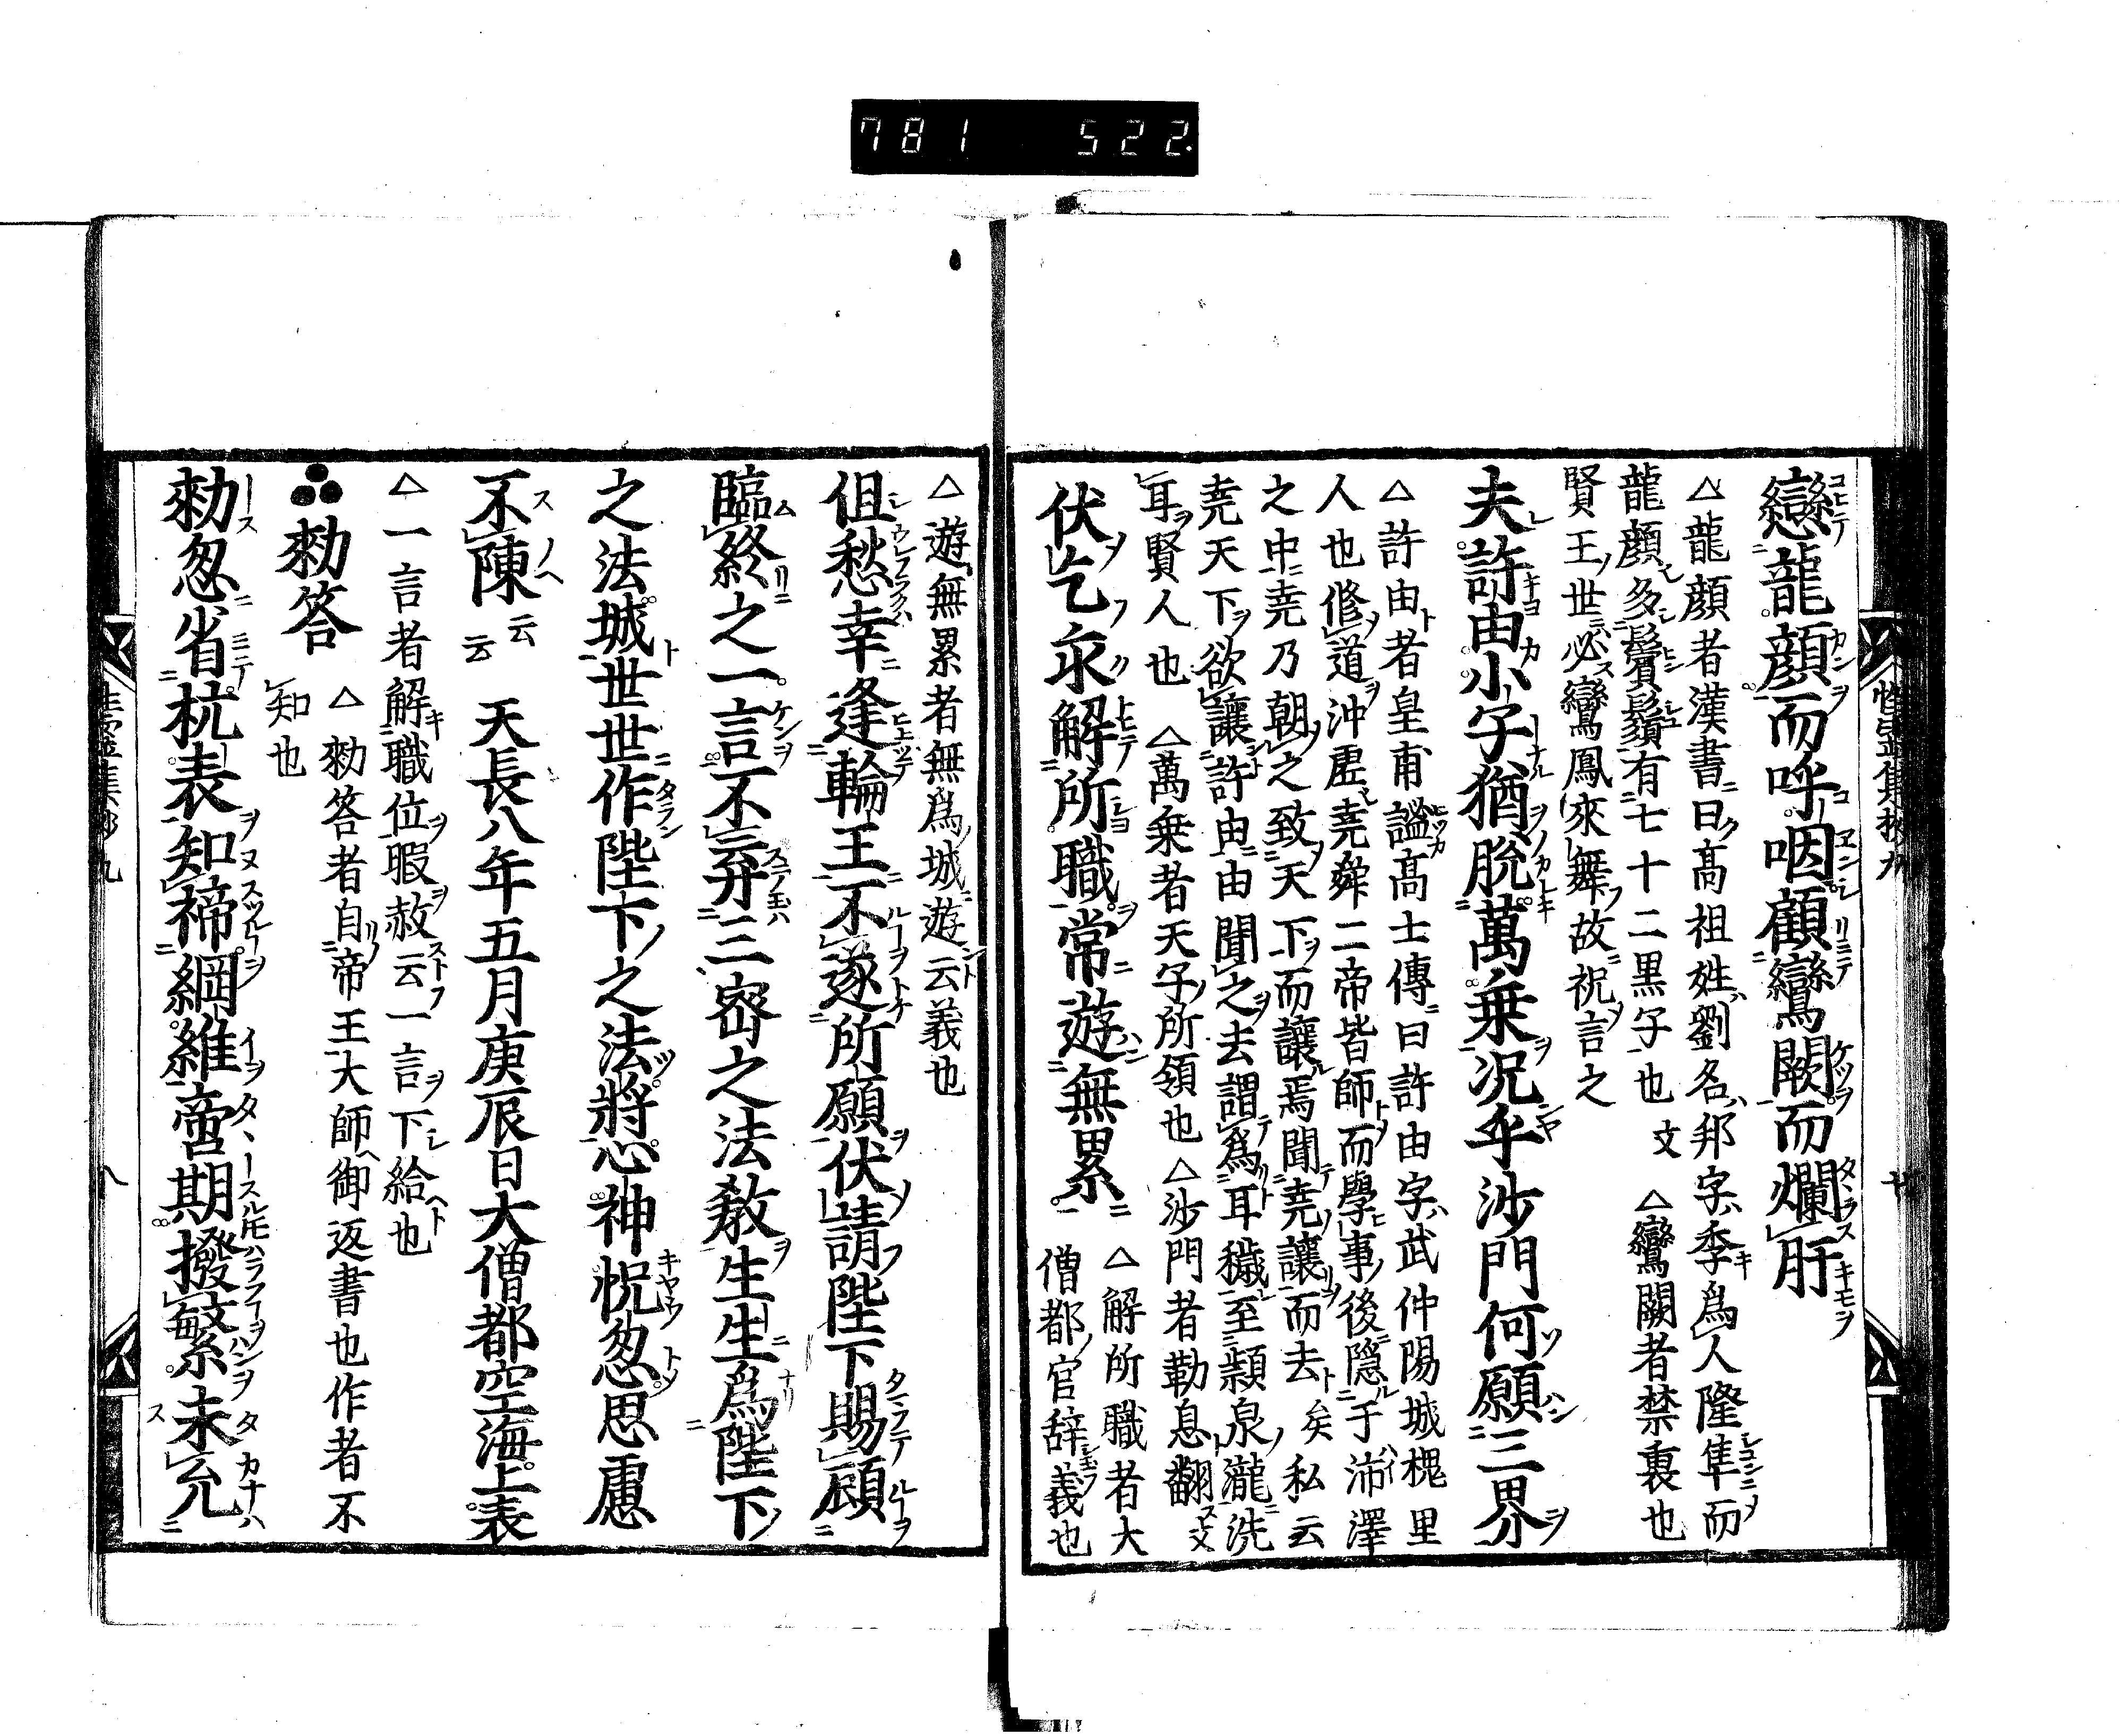 781 522
戀龍顔而呼咽顧鸞闕而爛肝
△龍顔者漢書曰高祖姓劉名邦字季爲人隆隼而
龍顔多鬢鬚有七十二黒子也文 △鸞闕者禁裏也
賢王世必鸞鳳來舞故祝言之
夫許由小子猶脱萬乗况乎沙門何願三界
△許由者皇甫謐高士傳曰許由字武仲陽城槐里
人也修道沖虚堯舜二帝皆師而學事後隱于沛澤
之中堯乃朝之致天下而讓焉聞堯讓而去矣私云
堯天下欲讓許由由聞之去謂爲耳穢至潁泉瀧洗
耳賢人也 △萬乗者天子所領也△沙門者勤息翻文
伏乞永解所職常遊無累 △解所職者大
僧都官辞義也
△遊無累者無爲城遊云義也
但愁幸逢輪王不遂所願伏請陛下賜顧
臨終之一言不弃三密之法教生生爲陛下
之法城世世作陛下之法將恐神怳忽思慮
不陳云云 天長八年五月庚辰日大僧都空海上表
△一言者解職位暇赦云一言下給也
勅答 △勅答者自帝王大師御返書也作者不
知也
勅忽省抗表知褅綱維啻期撥繁未允
性霊集抄九 七
八